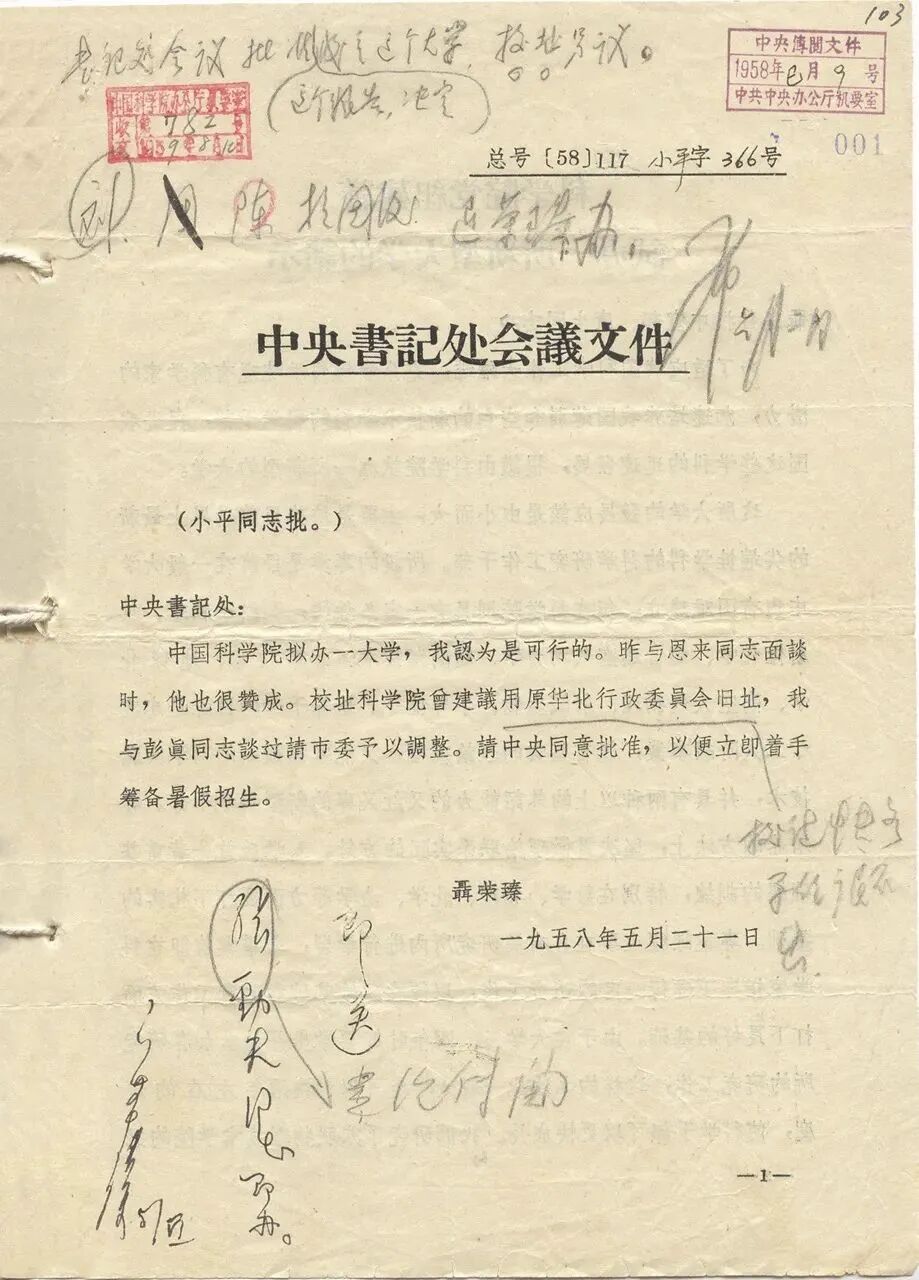 103
书记处会议批准成立这个大学,校址另议。
这个报告,决定
中央傳閱文件
1958年 6月 9 号
中共中央办公厅机要室
中国科学院办公厅
782
001
总号〔58〕117 小平字 366号
刘 周 陈 核阅后 退荣臻办.
六月二日
中央書記处会議文件
(小平同志批。)
中央書記处:
中国科学院拟办一大学,我認为是可行的。昨与恩来同志面談
时,他也很赞成。校址科学院曾建議用原华北行政委員会旧址,我
与彭眞同志談过請市委予以調整。請中央同意批准,以便立卽着手
筹备暑假招生。
聶荣臻
一九五八年五月二十一日
即送
張勁夫同志即办。
—1—